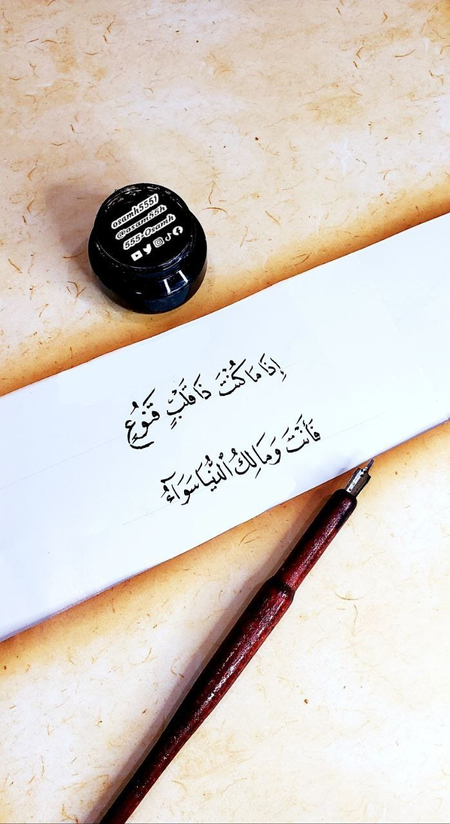 oxamh5551
@oxam55h
555-Oxamh
إِذَا مَا كُنْتَ ذَا قَلْبٍ قَنُوعٍ
فَأَنْتَ وَمَالِكُ الْدُّنْيَا سَوَآءُ